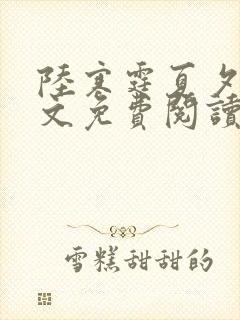 陸寒霆夏夕
文免費閱讀
雪糕甜甜的